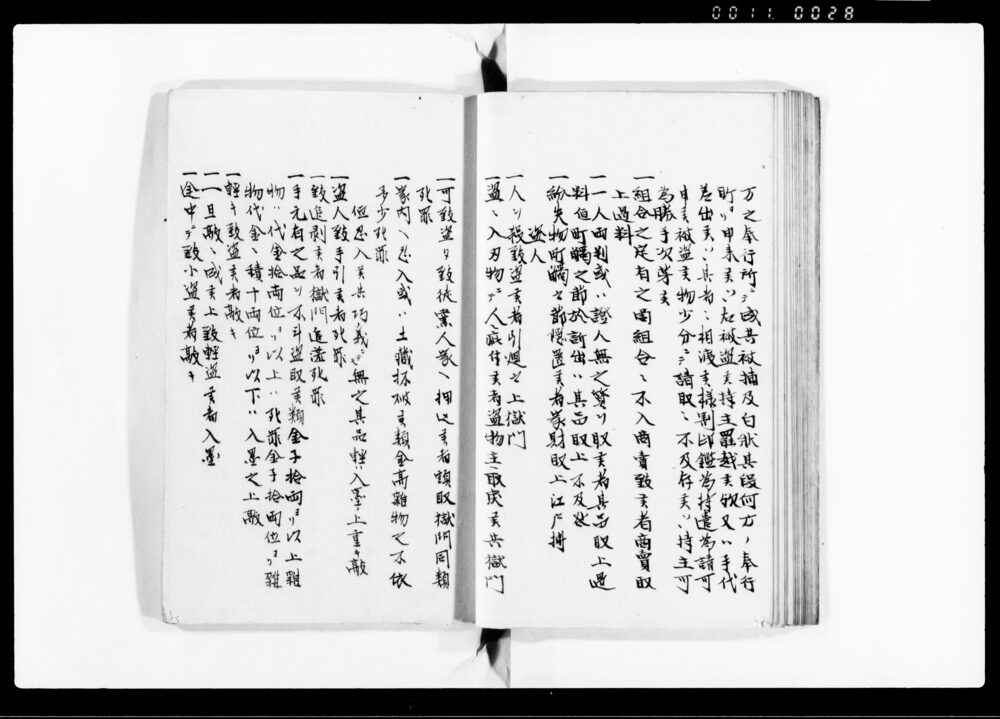 0011 0028
万之奉行所ニ而成共被捕及白状其段何方ノ奉行
所ゟ申来候ハヽ右被盗候持主罷越候歟又ハ手代
差出候ハヽ其者ニ相渡候様割印鑑為持遣為請可
申候被盗候物少分ニ而請取ニ不及存候ハヽ持主可
為勝手次第候
一組合之定有之商組合ヘ不入商売致候者商売取
上過料
一一人両判或ハ證人無之質ヲ取候者其品取上過
料但町触之節於訴出ハ其品取上不及咎
一紛失物町触之節隠置候者家財取上江戸払
盗人
一人ヲ殺致盗候者引廻之上獄門
一盗ニ入刃物ニ而人疵付候者盗物主ヘ取戻候共獄門
一可致盗ヲ致徒党人家ヘ押込候者頭取獄門同類
死罪
一家内ヘ忍入或ハ土蔵抔破候類金高雑物之不依
多少死罪
但忍入候共巧義ニ而無之其品軽ハ入墨之上重キ敲
一盗人致手引候者死罪
一致追剥候者獄門追落死罪
一手元有之品ヲ不斗盗取候類金子拾両ゟ以上雑
物ハ代金拾両位ゟ以上ハ死罪金子拾両位ゟ雑
物代金ニ積十両位ゟ以下ハ入墨之上敲
一軽キ致盗候者敲キ
一一旦敲ニ成候上致軽盗候者入墨
一途中ニ而致小盗候者敲キ